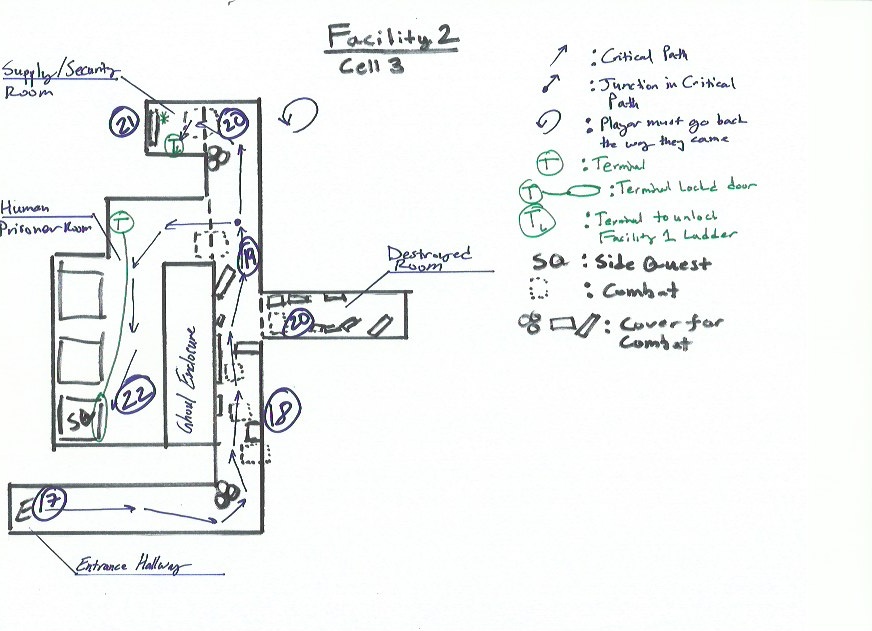 Facility 2
Cell 3
Supply/Security
Room
21
*
20
TL
Human
Prisoner Room
T
19
Destroyed
Room
20
Ghoul Enclosure
SQ
22
18
E
17
Entrance Hallway
: Critical Path
: Junction in Critical
Path
: Player must go back
the way they came
T : Terminal
T : Terminal Lock'd door
TL : Terminal to unlock
Facility 1 Ladder
SQ : Side Quest
: Combat
: Cover for
Combat